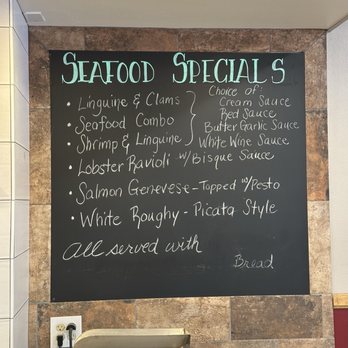 SEAFOOD SPECIALS
• Linguine & Clams
• Seafood Combo
• Shrimp & Linguine
Choice of:
Cream Sauce
Red Sauce
Butter Garlic Sauce
White Wine Sauce
• Lobster Ravioli w/Bisque Sauce
• Salmon Genevese - Topped w/Pesto
• White Roughy - Picata Style
All served with
Bread